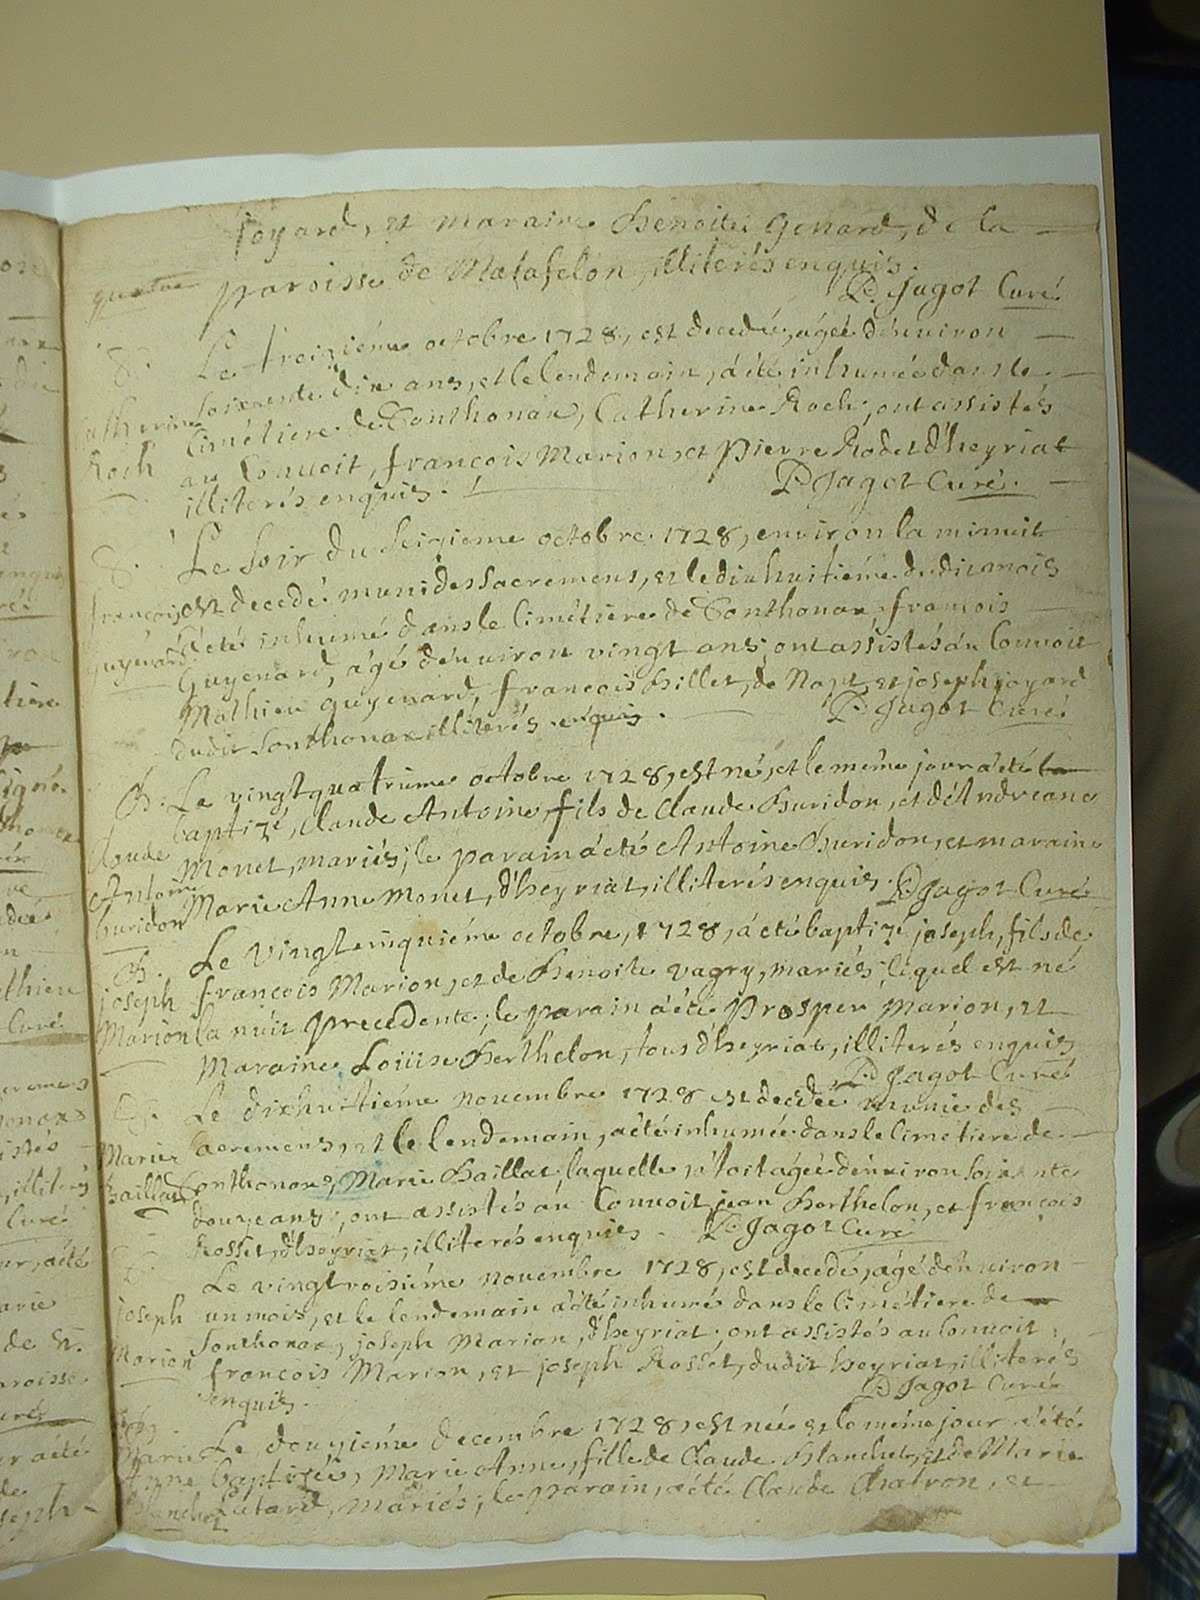 joyard, et maraine Benoite Genard, de la
quatre
paroisse de Matafelon, illiterés enquis.
P. Jagot Curé
S.
atherine
Roch
Le treizième octobre 1728, est decedée, agée d'énviron
soixante dix ans, et le lendemain, a été inhumée dans le
Cimétiere de Sonthonax, Catherine Roch; ont assistés
au Convoit, françois Marion, et Pierre Rodet d'heyriat
illiterés enquis.
P. Jagot Curé.
S.
françois
Guyenard
Le soir du seizieme octobre 1728, environ la minuit
est decedé muni des sacremens, et le dixhuitiéme dudit mois
a été inhumé dans le Cimétiere de Sonthonax françois
Guyenard, agé d'énviron vingt ans; ont assistés au Convoit
Mathieu guyenard, françois Billet, de Napt, et joseph joyard
dudit Sonthonax illiterés enquis.
P. Jagot Curé
B.
Claude
Antoine
buridon
Le vingt quatrieme octobre 1728, est né, et le même jour a été
baptizé, Claude Antoine, fils de Claude Buridon, et d'Andreane
Monet, mariés; le parain a été Antoine Buridon, et maraine
Marie Anne Monet, d'heyriat, illiterés enquis. P. Jagot Curé
B.
joseph
Marion
Le vingt cinquiéme octobre, 1728, a été baptizé joseph, fils de
françois Marion, et de Benoite vagry, mariés; lequel est né
la nuit precedente; le parain a été Prosper Marion, et
Maraine Loüise Berthelon, tous d'heyriat, illiterés enquis
P. Jagot Curé
S.
Marie
baillat
Le dixhuitiéme novembre 1728 est decedée munie des
sacremens, et le lendemain, a été inhumée dans le Cimetiere de
Sonthonax, Marie Baillat, laquelle étoit agée d'énviron soixante
douze ans; ont assistés au Convoit, jean Berthelon, et françois
Rosset, d'heyriat, illiterés enquis. P. Jagot Curé
S.
joseph
Marion
Le vingt troisiéme novembre 1728, est decedé, agé d'énviron
un mois, et le lendemain a été inhumé dans le Cimétiere de
Sonthonax, joseph Marion, d'heyriat; ont assistés au Convoit,
françois Marion, et joseph Rosset, dudit heyriat, illiterés
enquis.
P. Jagot Curé
B.
Marie
Anne
blanchet
Le douziéme decembre 1728, est née et le même jour a été
baptizée, Marie Anne, fille de Claude Blanchet, et de Marie
Cutard, Mariés; le parain, a été Claude Chatron, et